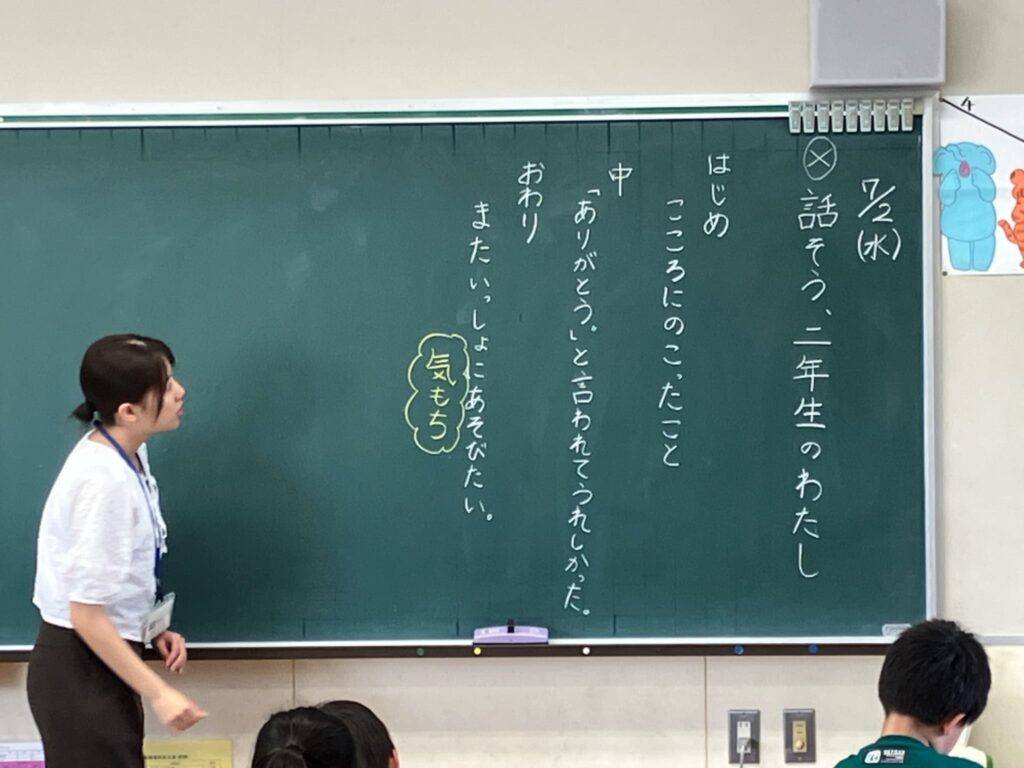 7/2(水)
㋱ 話そう、二年生のわたし
はじめ
こころにのこったこと
中
「ありがとう。」と言われてうれしかった。
おわり
またいっしょにあそびたい。
気もち
4